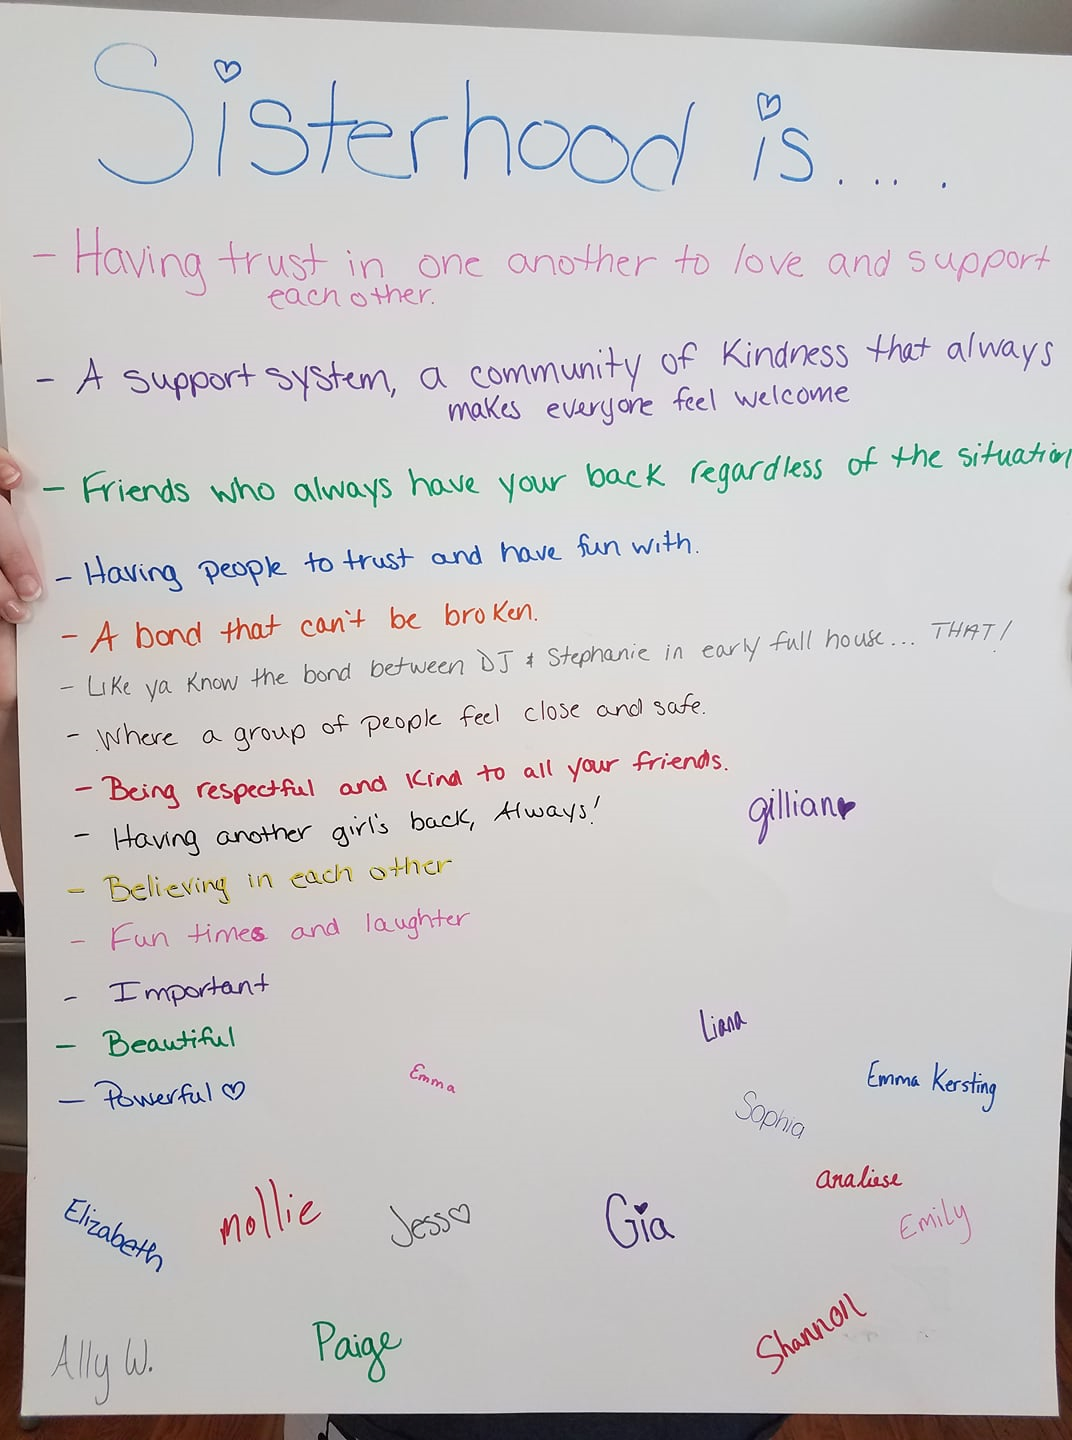 Sisterhood is....
- Having trust in one another to love and support
each other.
- A support system, a community of Kindness that always
makes everyone feel welcome
- Friends who always have your back regardless of the situation
- Having people to trust and have fun with.
- A bond that can't be broken.
- Like ya know the bond between DJ & Stephanie in early full house... THAT!
- Where a group of people feel close and safe.
- Being respectful and kind to all your friends.
- Having another girl's back, Always!
gillian♥
- Believing in each other
- Fun times and laughter
- Important
Liana
- Beautiful
Emma
Emma Kersting
- Powerful ♡
Sophia
analiese
Elizabeth
mollie
Jess♡
Gia
Emily
Shannon
Paige
Ally W.